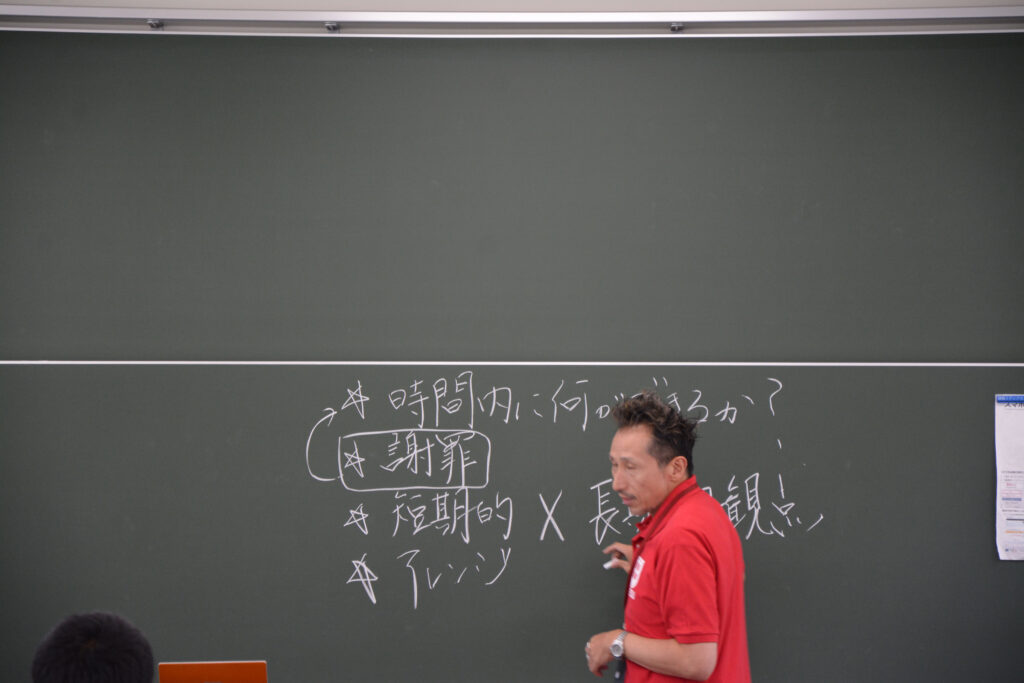 ☆ 時間内に何ができるか?
☆ 謝罪
☆ 短期的 X 長 観点
☆ アレンジ
スマホ